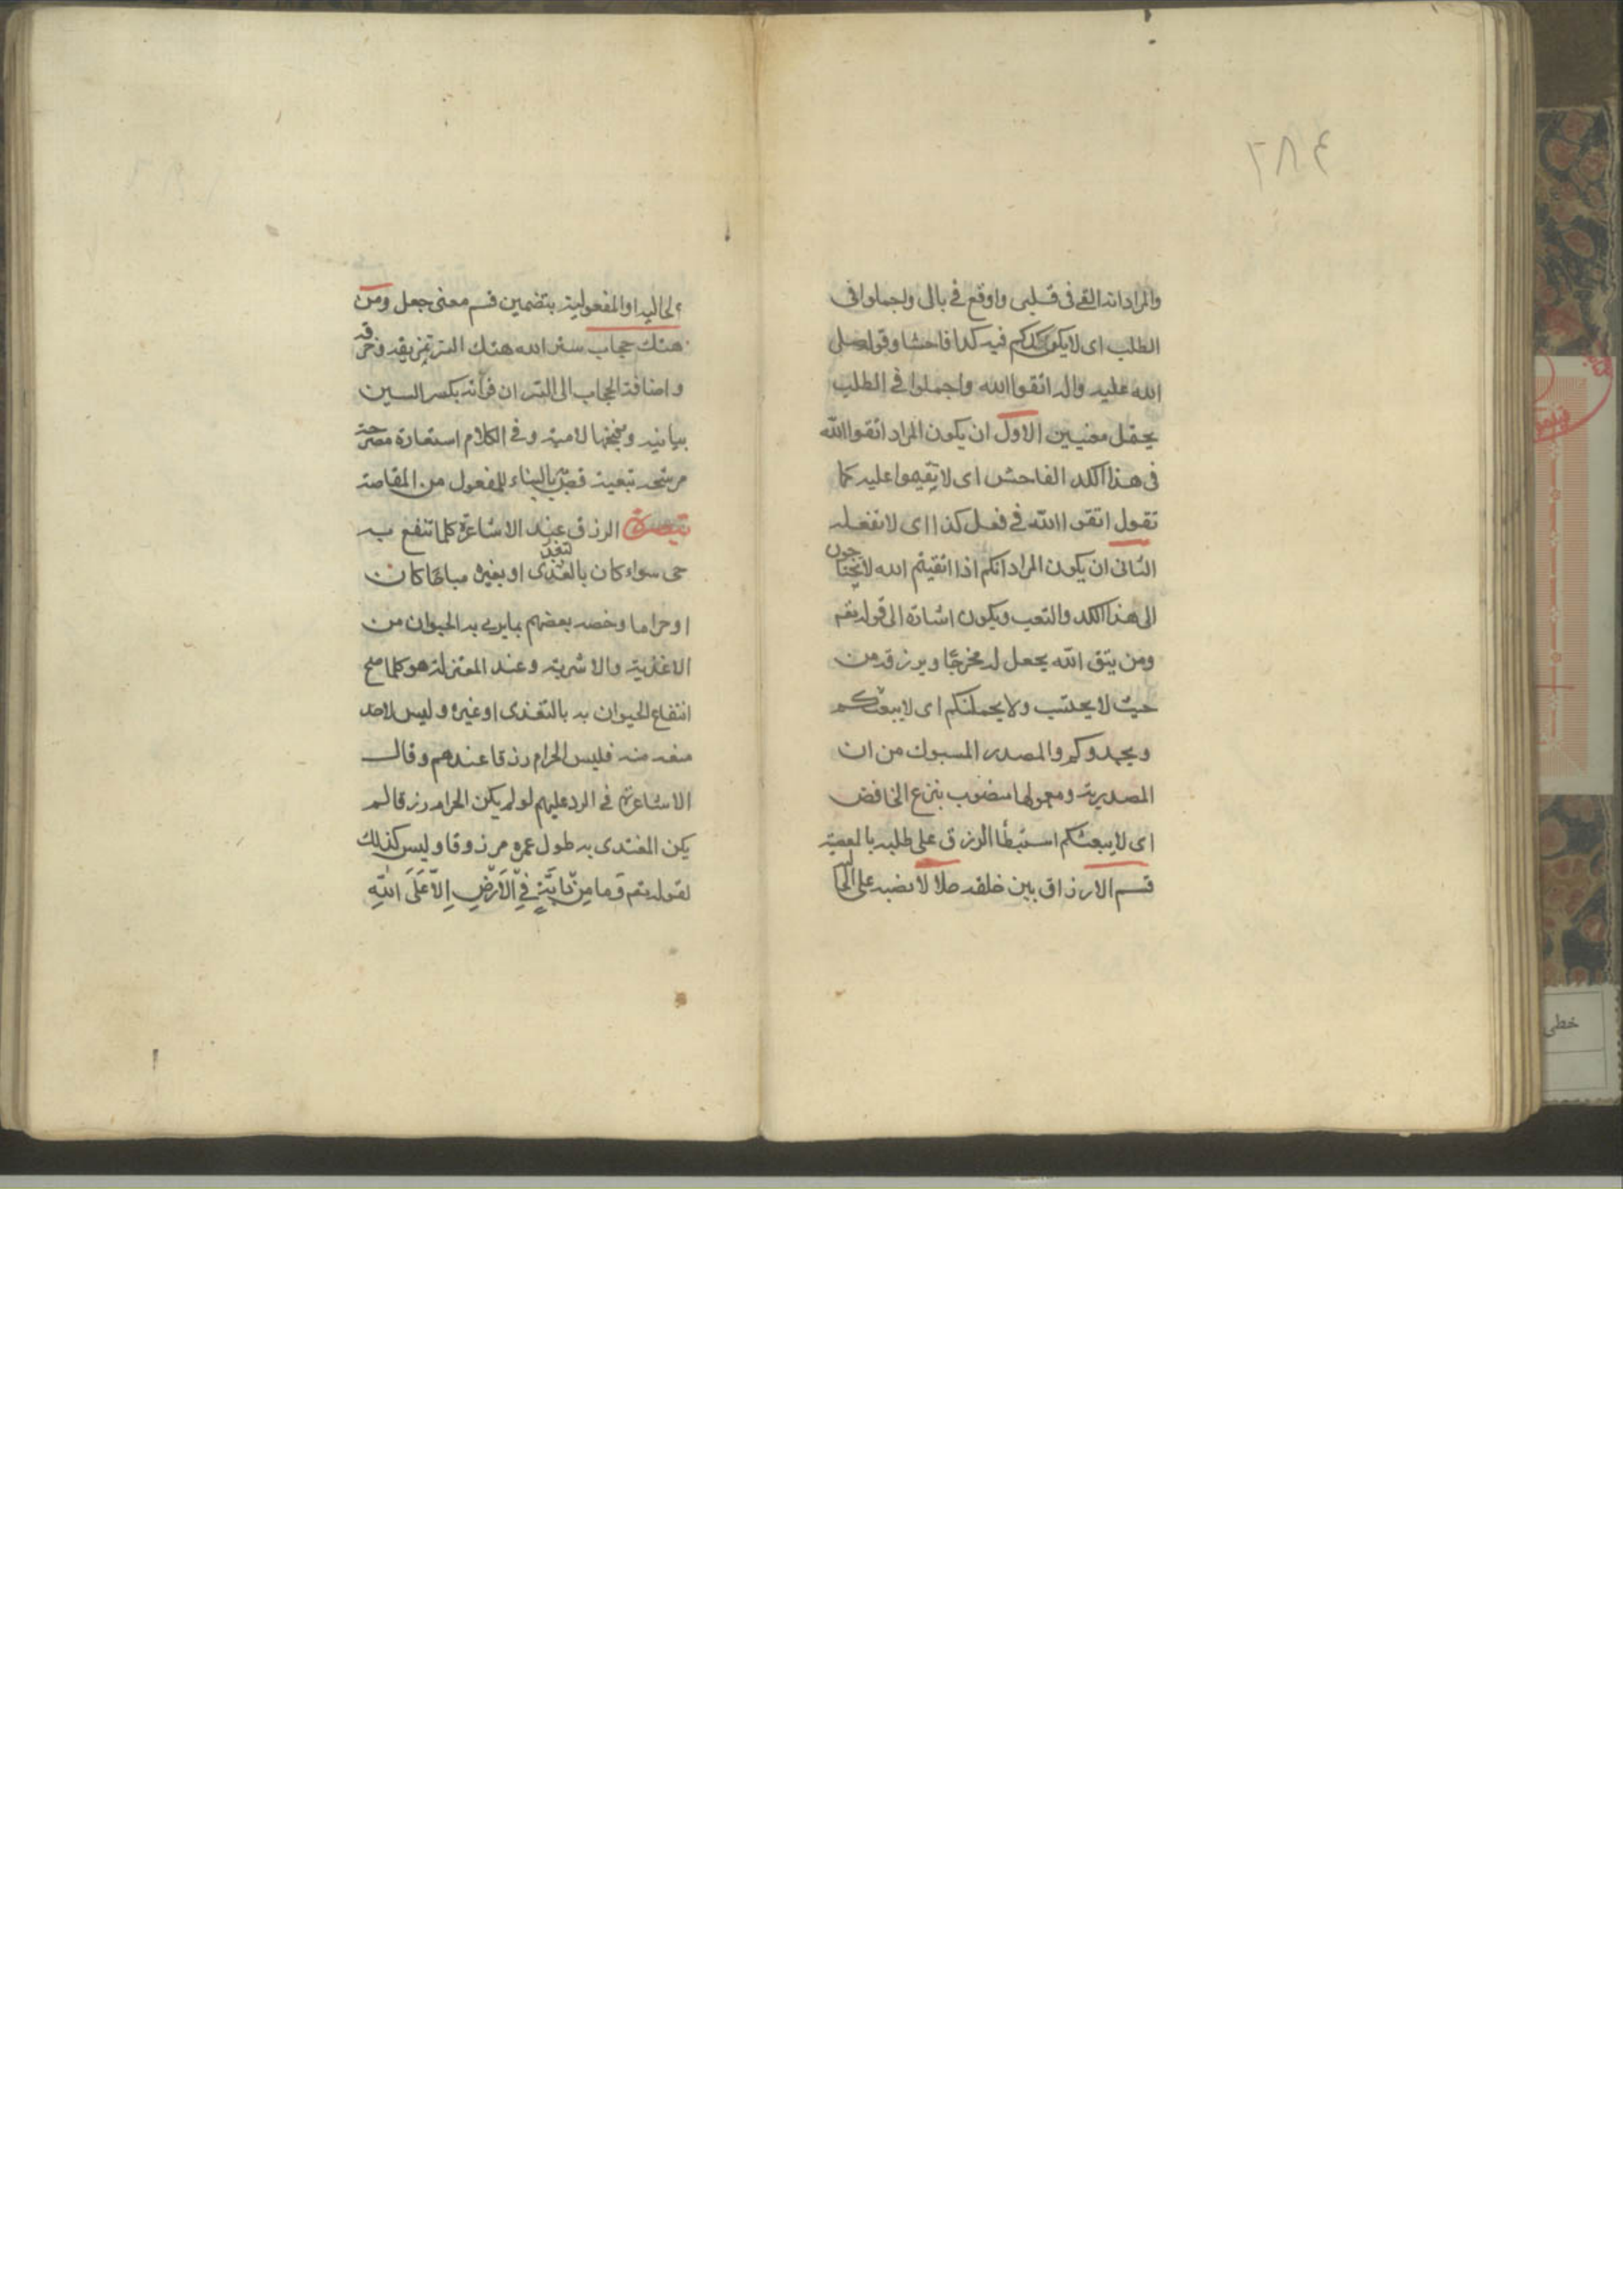 ٢٨٤
والمراد انه القی فی قلبی واوقع فی بالی واجملوا فی
الطلب ای لا یکون کدکم فیه کدا فاحشا وقوله صلی
الله علیه واله اتقوا الله واجملوا فی الطلب
یحتمل معنیین الاول ان یکون المراد اتقوا الله
فی هذا الکد الفاحش ای لا تقیموا علیه کما
تقول اتقوا الله فی فعل کذا ای لا تفعله
الثانی ان یکون المراد انکم اذا اتقیتم الله لا تحتاجون
الی هذا الکد والتعب ویکون اشارة الی قوله تعم
ومن یتق الله یجعل له مخرجا ویرزقه من
حیث لا یحتسب ولا یحملنکم ای لا یبعثکم
ویحدوکم والمصدر المسبوک من ان
المصدریة ومعمولها منصوب بنزع الخافض
ای لا یبعثکم استبطاء الرزق علی طلبه بالمعصیة
قسم الارزاق بین خلقه حلالا نصبه علی الحا
الحالیه او المفعولیة بتضمین قسم معنی جعل ومن
هتک حجاب ستر الله هتک الستر تمزیقه وخرقه
واضافة الحجاب الی الستر ان قرأته بکسر السین
بیانیه وبفتحها لامیة وفی الکلام استعارة مصرحة
مرشحه تبعیة قص بالبناء للمفعول من المقاصة
تبصرة الرزق عند الاشاعرة کلما انتفع به
حی سواء کان بالتغذی او بغیره مباحا کان
او حراما وخصه بعضهم بما یربی به الحیوان من
الاغذیة والاشربة وعند المعتزلة هو کلما صح
انتفاع الحیوان به بالتغذی او غیره ولیس لاحد
منعه منه فلیس الحرام رزقا عندهم وقالـ
الاشاعرة فی الرد علیهم لو لم یکن الحرام رزقا لم
یکن المغتذی به طول عمره مرزوقا ولیس کذلک
لقوله تعم وَما مِنْ دابَّةٍ فِی الْاَرْضِ اِلّا عَلَی اللّهِ
خطی